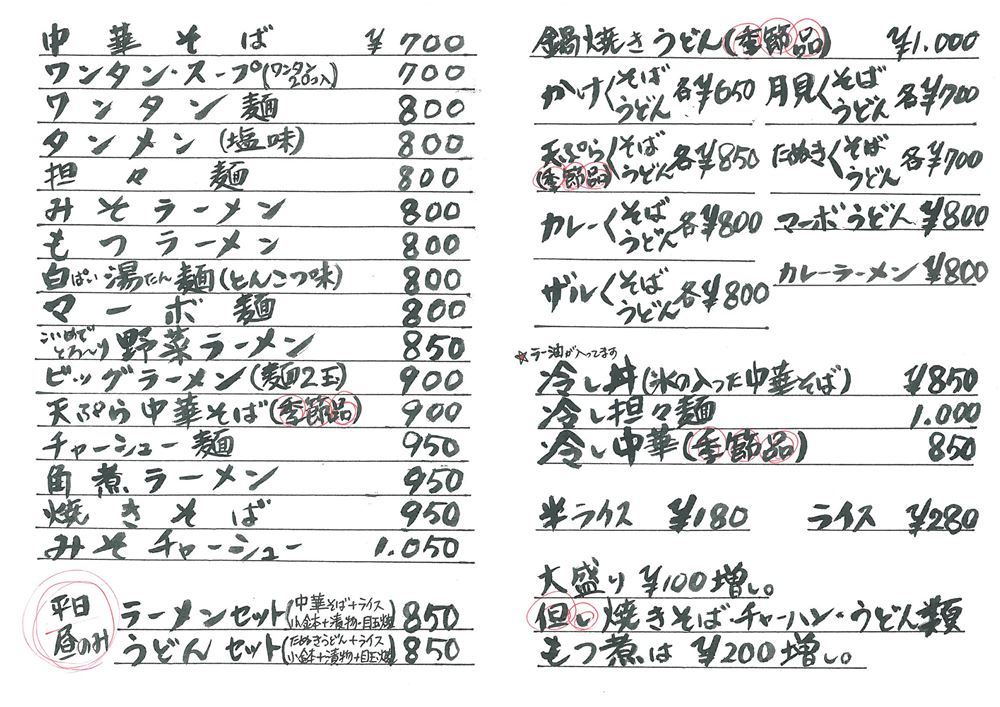 中華そば ¥700
ワンタン・スープ(ワンタン20コ入) 700
ワンタン麺 800
タンメン(塩味) 800
担々麺 800
みそラーメン 800
もつラーメン 800
白ぱい湯たん麺(とんこつ味) 800
マーボ麺 800
こいめでとろ〜り野菜ラーメン 850
ビッグラーメン(麺2玉) 900
天ぷら中華そば(季節品) 900
チャーシュー麺 950
角煮ラーメン 950
焼きそば 950
みそチャーシュー 1.050
平日昼のみ
ラーメンセット(中華そば+ライス 小鉢+漬物・目玉焼) 850
うどんセット(たぬきうどん+ライス 小鉢+漬物+目玉焼) 850
鍋焼きうどん(季節品) ¥1.000
かけくそば うどん 各¥650
月見くそば うどん 各¥700
天ぷら(季節品)くそば うどん 各¥850
たぬきくそば うどん 各¥700
カレーくそば うどん 各¥800
マーボうどん ¥800
ザルくそば うどん 各¥800
カレーラーメン ¥800
★ラー油が入ってます
冷し丼(氷の入った中華そば) ¥850
冷し担々麺 1.000
冷し中華(季節品) 850
半ライス ¥180
ライス ¥280
大盛り¥100増し。
但し焼きそば・チャーハン・うどん類
もつ煮は¥200増し。